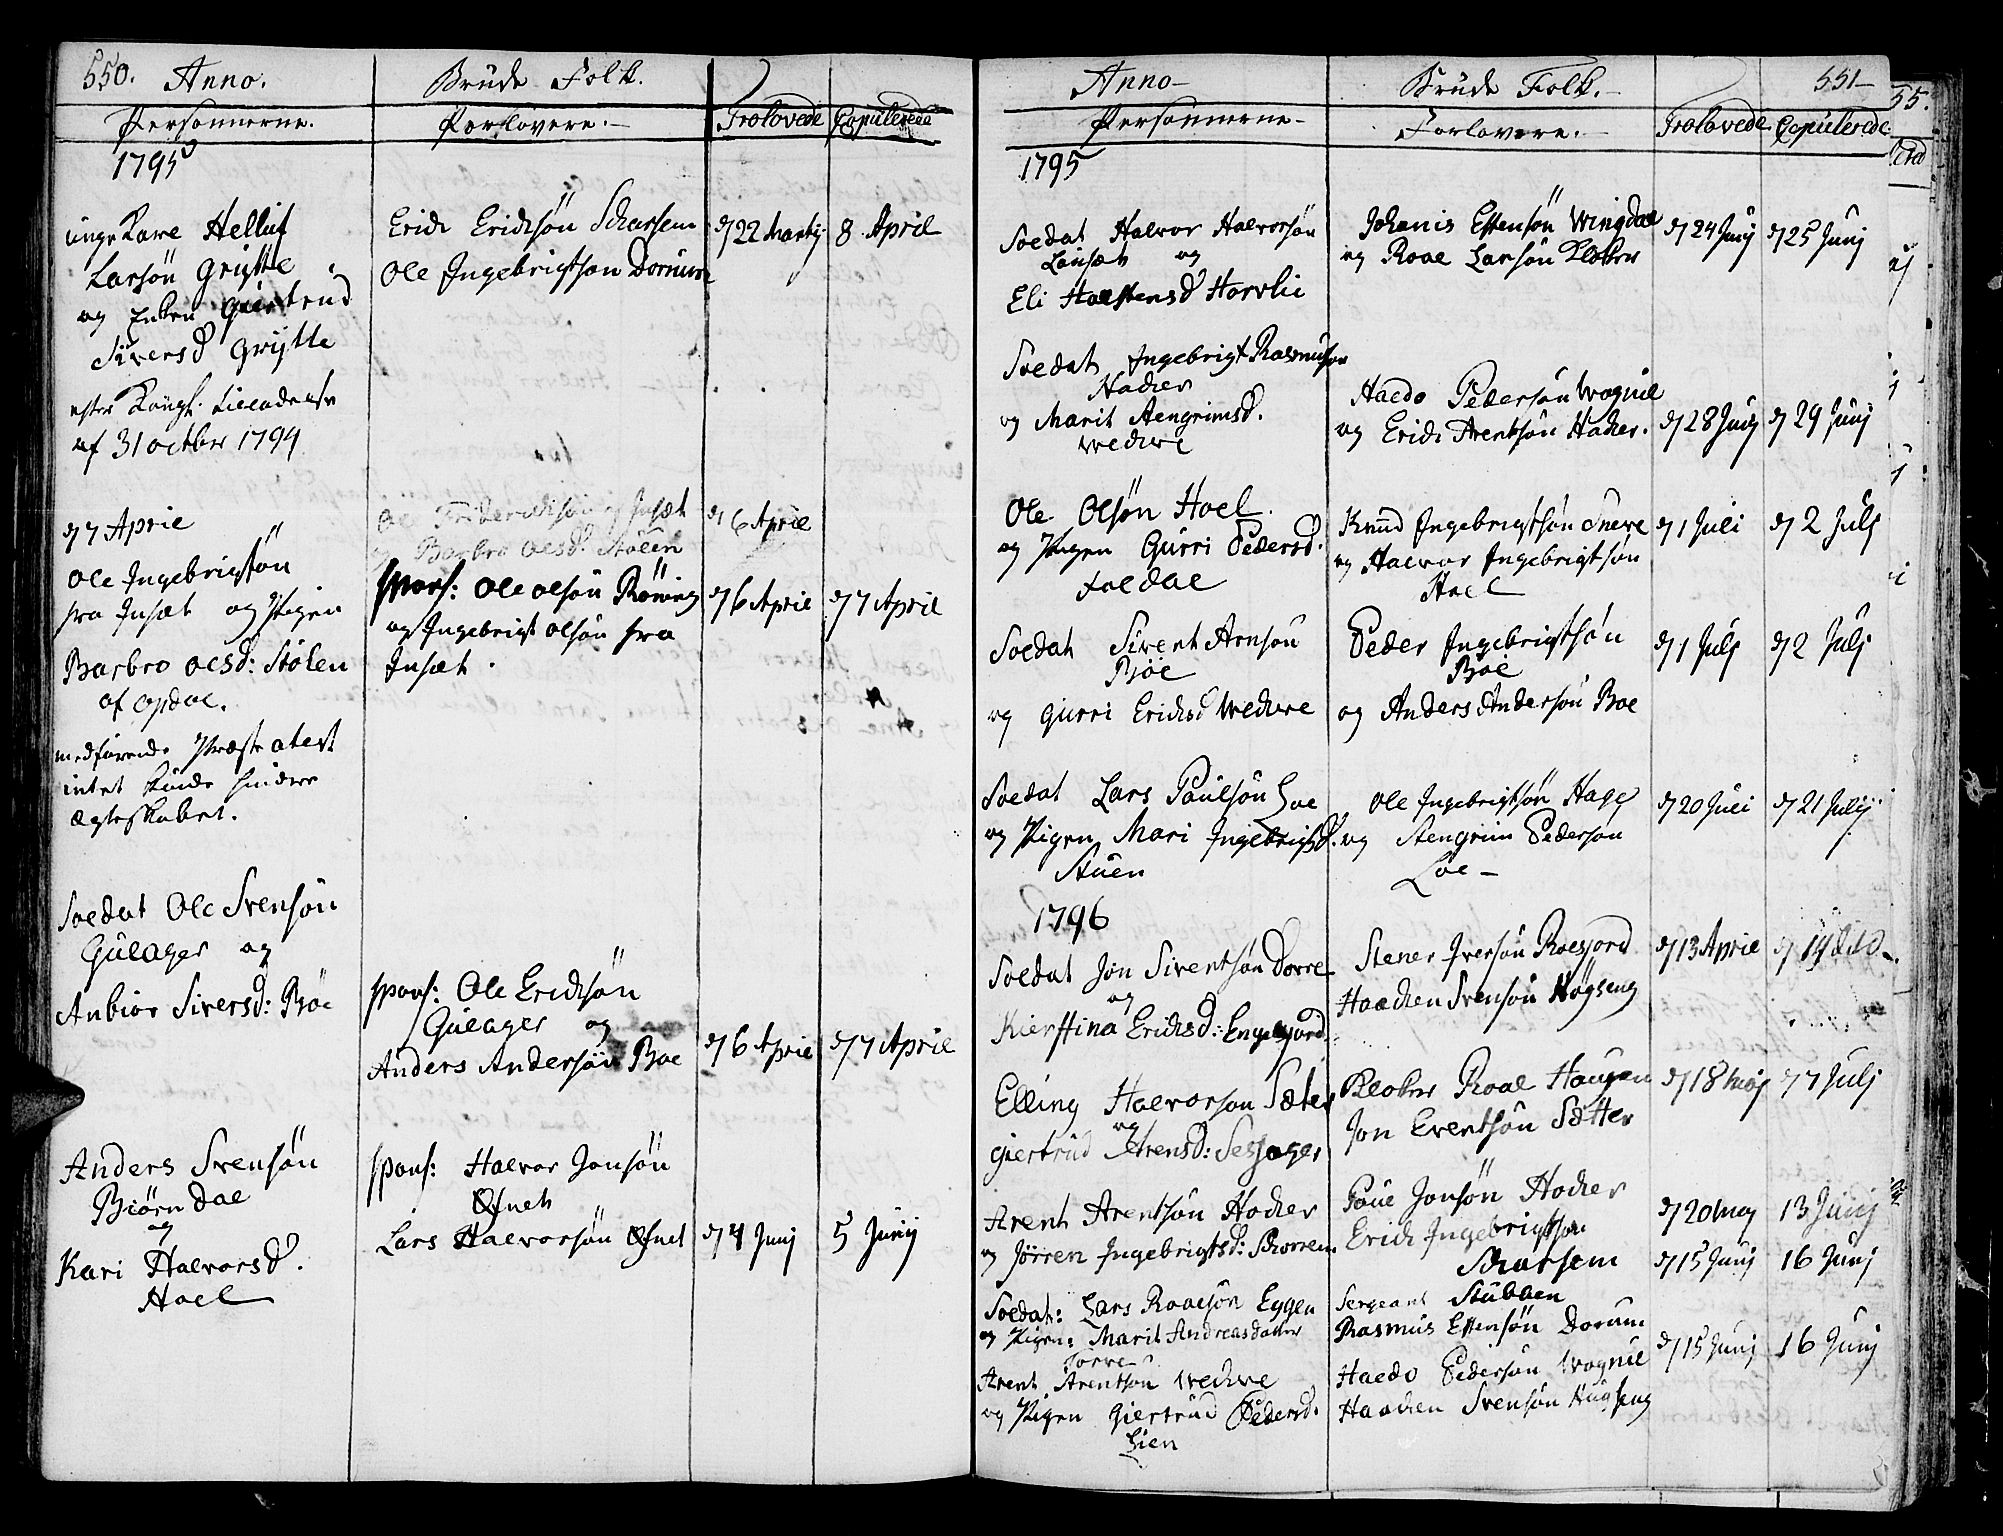 550. Anno.
Brude Folk.
Personnerne.
Forlovere.
Trolovede
Copulerede
1795
unge Karl Helluf
Larsön Grÿtte
og Enken Giertrud
Siversd Grÿtte
efter Kongl.
af 31 octbr 1794
Erich Erichsön Scharsem
Ole Ingebrigtsøn Dorrum
d 22 Martij
8 April
d 7 April
Ole Ingebrigtsön
fra Insæt og Pigen
Barbro olsd: Stölen
af opdal.
medförende Præste atest
intet kunde hindre
Ægteskabet.
Insæt
og Barbro olsd. Stölen
spons: Ole olsön Röning
og Ingebrigt olsön fra
Insæt.
d 6 April
d 6 April
d 7 April
Soldat Ole Svensön
Gulager og
Anbior Siversd: Böe
spons: Ole Erichsön
Gulager og
Anders Andersön Boe
d 6 April
d 7 April
Anders Svensön
Biörndal
og
Kari Halvorsd.
Hoel
spons: Halvor Jonsön
Öfnet
Lars Halvorsön Öfnet
d 4 Junij
5 Junij
Anno
Brude Folk.
551
Personnerne
Forlovere.
Trolovede
Copulerede
1795
Soldat Halvor Halvorsön
og
Eli Halstensd Horvlie
Johanis Estensön Wingdal
og Roal Larsön Klokker
d 24 Junij
d 25 Junij
Soldat Ingebrigt Rasmusson
Hocker
og Marit Aengrimsd.
Weckve
Haldo Pedersön Wognil
og Erich Arentsön Hocker.
d 28 Junij
d 29 Junij
Ole Olsön Hoel
og Pigen Gurri Pedersd.
Foldal
Knud Ingebrigtsön Sneve
og Halvor Ingebrigtsön
Hoel
d 1 Juli
d 2 Julj
Soldat Sivert Arnsön
Böe
og Gurri Ericksd Weckve
Peder Ingebrigtsön
Boe
og Anders Andersön Boe
d 1 Julj
d 2 Julj
Soldat Lars Paulsön Loe
og Pigen Mari Ingebrigtsd.
Stuen
Ole Ingebrigtsön Hage
og Stengrim Pedersön
Loe
d 20 Juli
d 21 Julij
1796
Soldat Jon Sivertsön Dorre
og
Kierstina Ericksd: Engelsjord
Stener Iversön Roesjord
Haacken Svensön Högseng
d 13 April
d 14 dito
Elling Halvorson Sæter
og
Giertrud Arensd: Sesjager
Klokker Roal Haugen
Jon Evertsön Sætter
d 18 Maj
7 Julj
Arent Arentsön Hocker
og Jörren Ingebrigtsd: Schorrem
Poul Jonsön Hocker
Erich Ingebrigtson
Scharsem
d 20 Maj
13 Junij
Soldat: Lars Roalsön Eggen
og Pigen: Marit Andreasdatter
Torve
Sergeant Stubben
Rasmus Estensön Dorum
d 15 Junij
16 Junij
Arent Arentsön Weckve
og Pigen Giertrud Pedersd.
Lien
Haldo Pedersön Wognil
Haacken Svensön Hügseng
d 15 Junij
16 Junij
55.